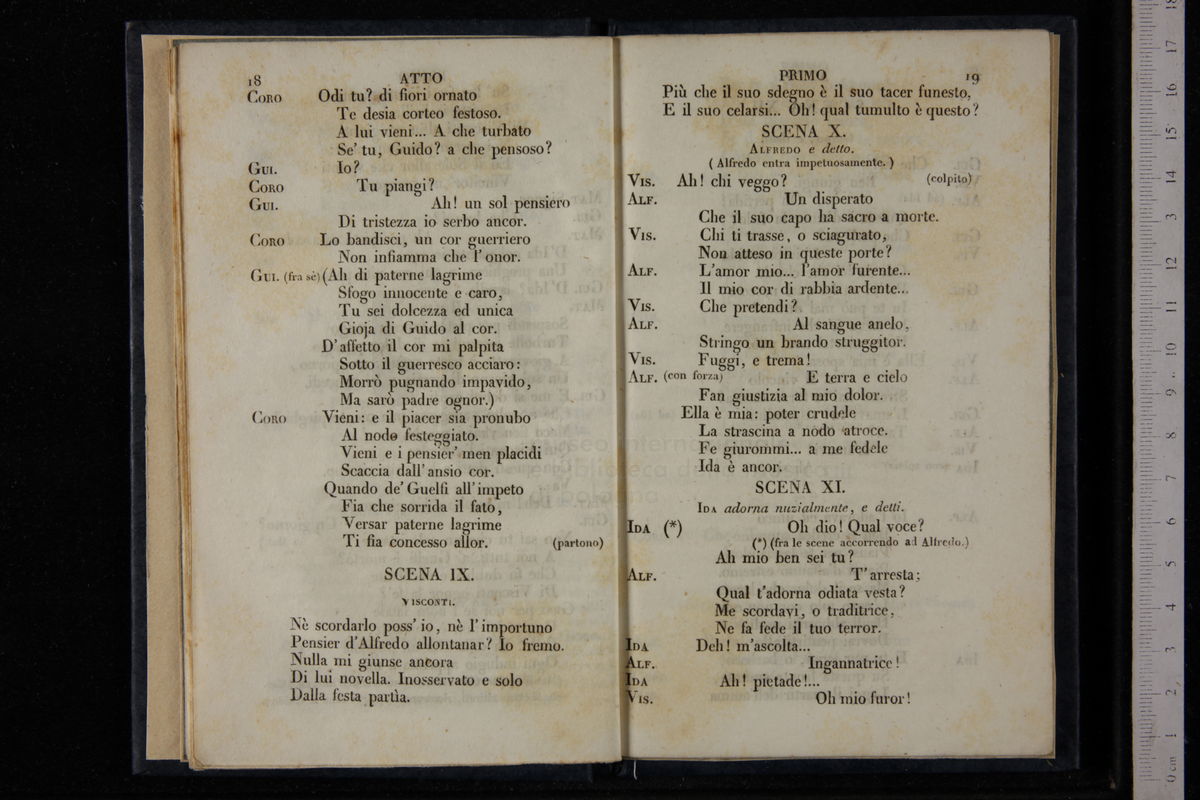 18 ATTO
CORO Odi tu? di fiori ornato
Te desia corteo festoso.
A lui vieni... A che turbato
Se' tu, Guido? a che pensoso?
GUI. Io?
CORO Tu piangi?
GUI. Ah! un sol pensiero
Di tristezza io serbo ancor.
CORO Lo bandisci, un cor guerriero
Non infiamma che l'onor.
GUI. (fra sè) (Ah di paterne lagrime
Sfogo innocente e caro,
Tu sei dolcezza ed unica
Gioja di Guido al cor.
D'affetto il cor mi palpita
Sotto il guerresco acciaro:
Morrò pugnando impavido,
Ma sarò padre ognor.)
CORO Vieni: e il piacer sia pronubo
Al nodo festeggiato.
Vieni e i pensier' men placidi
Scaccia dall'ansio cor.
Quando de' Guelfi all'impeto
Fia che sorrida il fato,
Versar paterne lagrime
Ti fia concesso allor. (partono)
SCENA IX.
VISCONTI.
Nè scordarlo poss'io, nè l'importuno
Pensier d'Alfredo allontanar? Io fremo.
Nulla mi giunse ancora
Di lui novella. Inosservato e solo
Dalla festa partìa.
PRIMO 19
Più che il suo sdegno è il suo tacer funesto,
E il suo celarsi... Oh! qual tumulto è questo?
SCENA X.
ALFREDO e detto.
(Alfredo entra impetuosamente.)
VIS. Ah! chi veggo? (colpito)
ALF. Un disperato
Che il suo capo ha sacro a morte.
VIS. Chi ti trasse, o sciagurato,
Non atteso in queste porte?
ALF. L'amor mio... l'amor furente...
Il mio cor di rabbia ardente...
VIS. Che pretendi?
ALF. Al sangue anelo,
Stringo un brando struggitor.
VIS. Fuggi, e trema!
ALF. (con forza) E terra e cielo
Fan giustizia al mio dolor.
Ella è mia: poter crudele
La strascina a nodo atroce.
Fe giurommi... a me fedele
Ida è ancor.
SCENA XI.
IDA adorna nuzialmente, e detti.
IDA (*) Oh dio! Qual voce?
(*) (fra le scene accorrendo ad Alfredo.)
Ah mio ben sei tu?
ALF. T'arresta;
Qual t'adorna odiata vesta?
Me scordavi, o traditrice,
Ne fa fede il tuo terror.
IDA Deh! m'ascolta...
ALF. Ingannatrice!
IDA Ah! pietade!...
VIS. Oh mio furor!